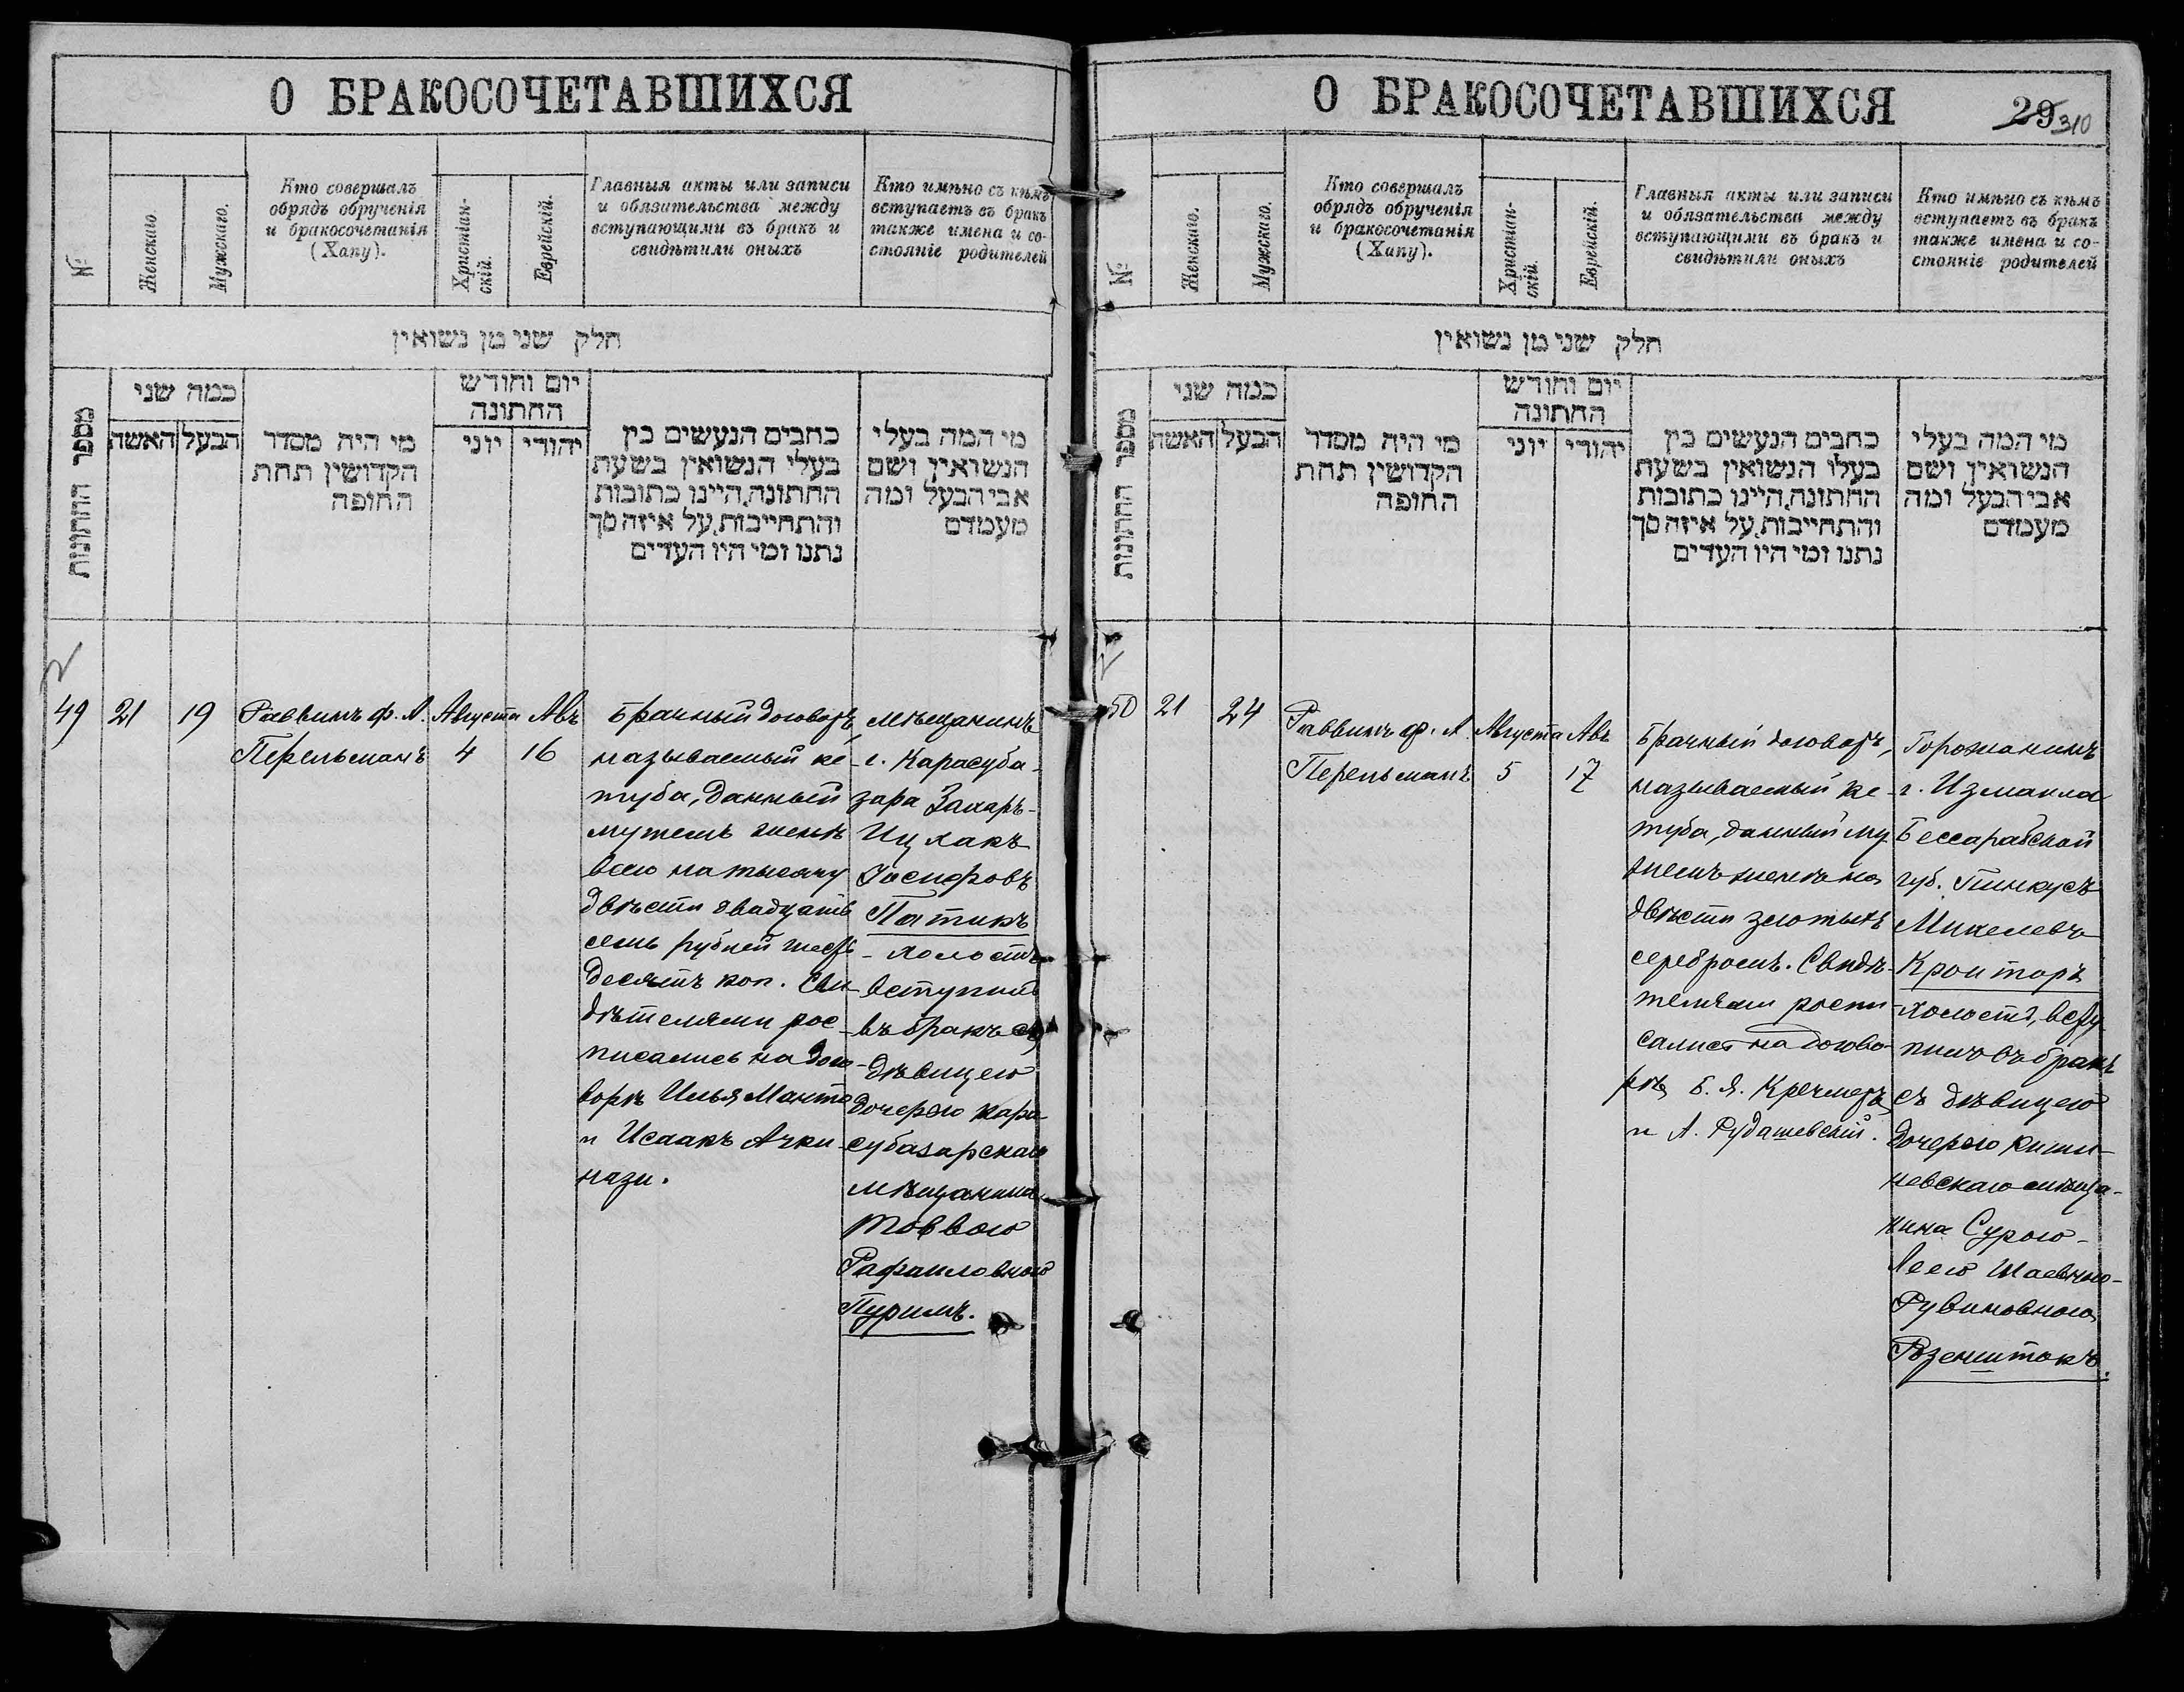 О БРАКОСОЧЕТАВШИХСЯ
№
Женскаго.
Мужскаго.
Кто совершалъ
обрядъ обрученія
и бракосочетанія
(Хапу).
Христіан-
скій.
Еврейскій.
Главныя акты или записи
и обязательства между
вступающими въ бракъ и
свидѣтили оныхъ
Кто имѣно съ кѣмъ
вступаетъ въ бракъ
также имена и со-
стояніе родителей
חלק שני מן נשואין
מספר החתונות
כמה שני
האשה
הבעל
מי היה מסדר
הקדושין תחת
החופה
יום וחודש
החתונה
יוני
יהודי
כתבים הנעשים בין
בעלי הנשואין בשעת
החתונה, היינו כתובות
והתחייבות, על איזה סך
נתנו ומי היו העדים
מי המה בעלי
הנשואין ושם
אבי הבעל ומה
מעמדם
49
21
19
Раввинъ Ф. Л.
Перельманъ
Августа
4
Авъ
16
Брачный договоръ,
называемый ке-
туба, данный
мужемъ женѣ
всего на тысячу
двѣсти двадцать
семь рублей шесть
десятъ коп. Сви-
дѣтелями рос-
писались на дого-
ворѣ Илья Манто
и Исаакъ Ачки-
нази.
мѣщанинъ
г. Карасуба-
зара Захаръ-
Ицхакъ
Іосифовъ
Патикъ
- холостъ
вступилъ
въ бракъ съ
дѣвицею
дочерью кара-
субазарскаго
мѣщанина
Товвою
Рафаиловною
Пуримъ.
О БРАКОСОЧЕТАВШИХСЯ
29 310
№
Женскаго.
Мужскаго.
Кто совершалъ
обрядъ обрученія
и бракосочетанія
(Хапу).
Христіан-
скій.
Еврейскій.
Главныя акты или записи
и обязательства между
вступающими въ бракъ и
свидѣтили оныхъ
Кто имѣно съ кѣмъ
вступаетъ въ бракъ
также имена и со-
стояніе родителей
חלק שני מן נשואין
מספר החתונות
כמה שני
האשה
הבעל
מי היה מסדר
הקדושין תחת
החופה
יום וחודש
החתונה
יוני
יהודי
כתבים הנעשים בין
בעלי הנשואין בשעת
החתונה, היינו כתובות
והתחייבות, על איזה סך
נתנו ומי היו העדים
מי המה בעלי
הנשואין ושם
אבי הבעל ומה
מעמדם
50
21
24
Раввинъ Ф. Л.
Перельманъ
Августа
5
Авъ
17
Брачный договоръ,
называемый ке-
туба, данный му-
жемъ женѣ на
двѣсти злотыхъ
серебромъ. Свидѣ-
телями роспи-
сались на догово-
рѣ Б. Я. Кречмеръ
и А. Рудашевскій.
Горожанинъ
г. Измаила
Бессарабской
губ. Пинкусъ
Михелевъ
Кройторъ
- холостъ, всту-
пилъ въ бракъ
съ дѣвицею
дочерью киши-
невскаго мѣща-
нина Сурою-
Леею Шаевною-
Рувиновною
Розенштокъ.